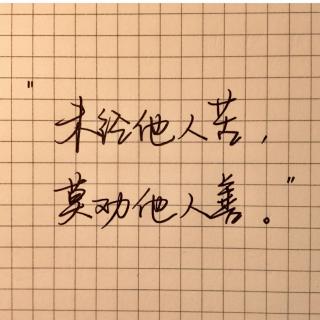 "未经他人苦，
莫劝他人善。"